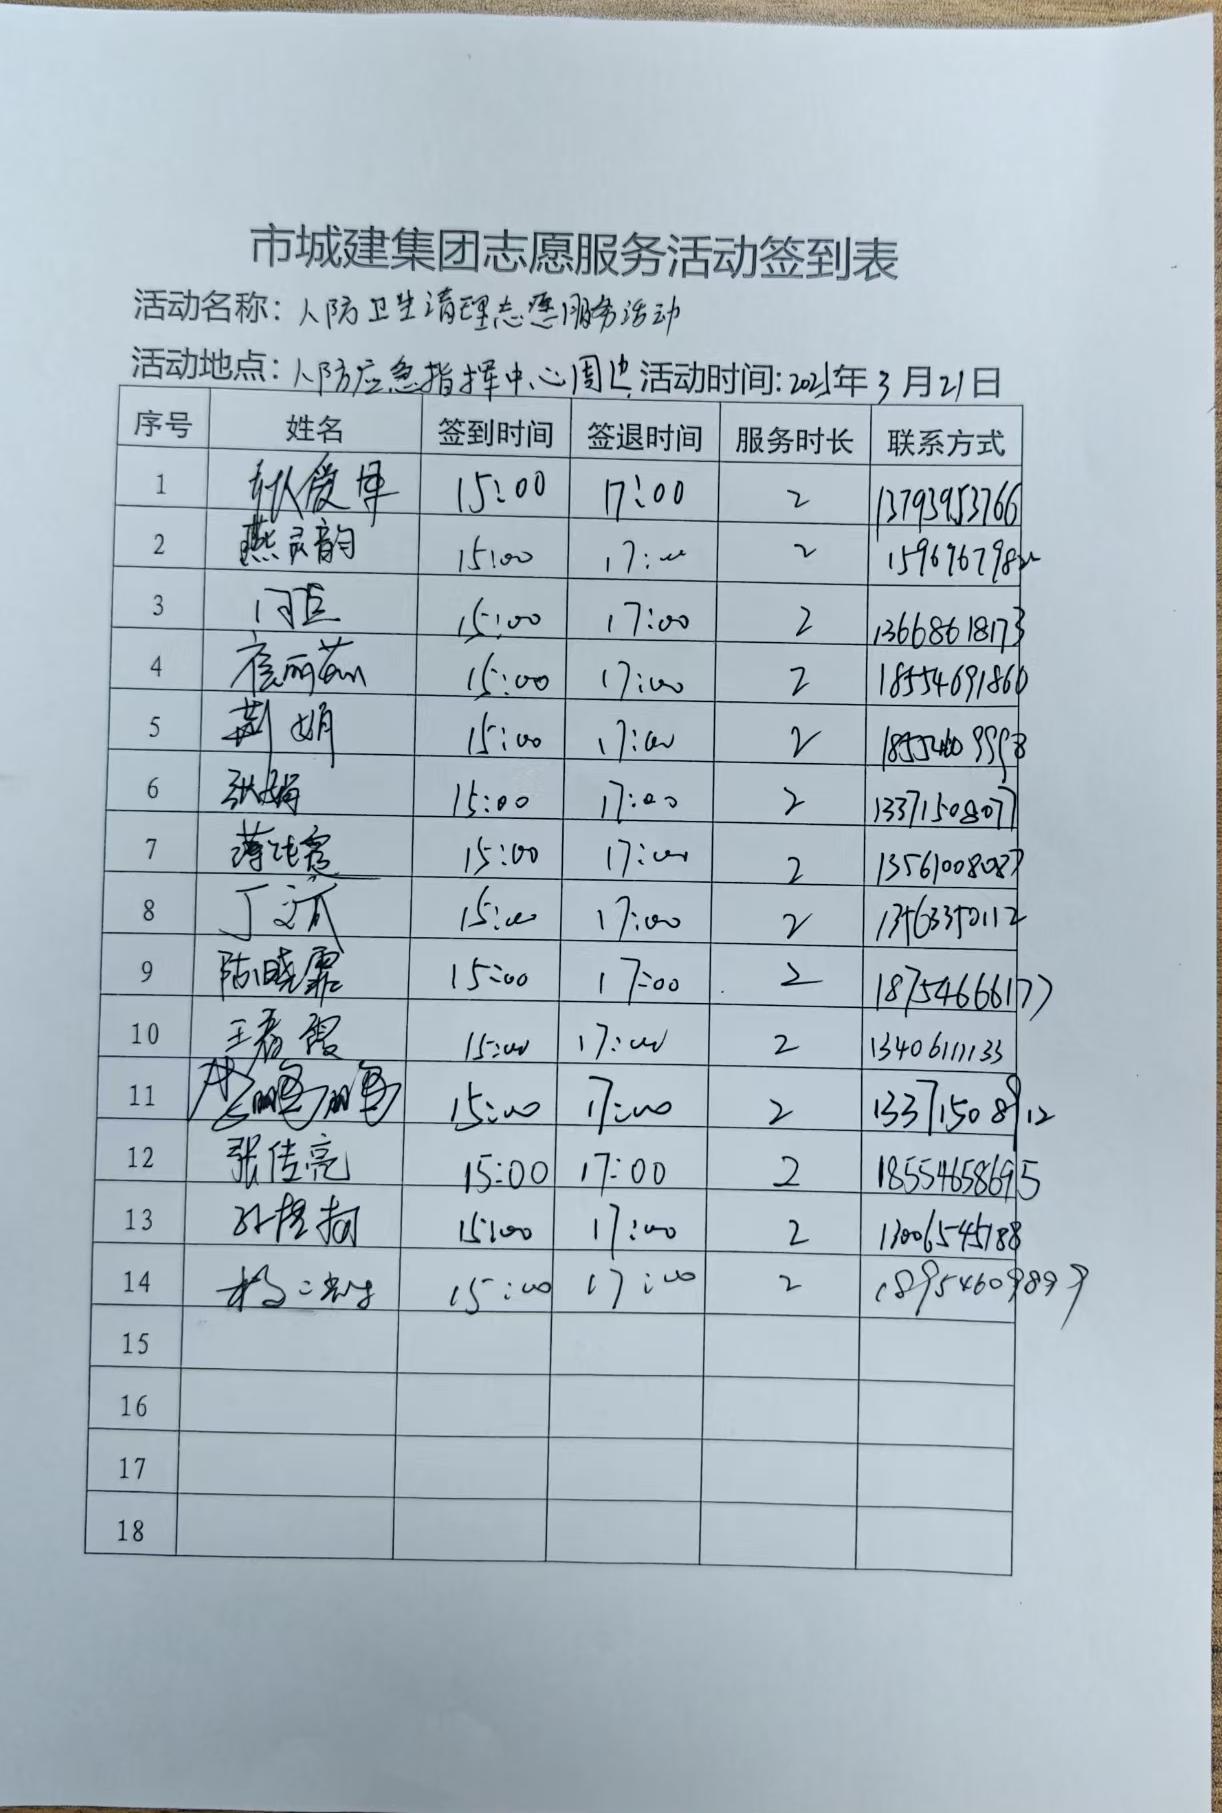 市城建集团志愿服务活动签到表
活动名称：人防卫生清理志愿服务活动
活动地点：人防应急指挥中心周边 活动时间：2025年3月21日
序号 姓名 签到时间 签退时间 服务时长 联系方式
1 15:00 17:00 2 13793953766
2 燕灵韵 15:00 17:00 2
3 闫臣 15:00 17:00 2 13668618173
4 15:00 17:00 2 18554691860
5 荆娟 15:00 17:00 2
6 张娟 15:00 17:00 2 13371508077
7 15:00 17:00 2 13561008087
8 丁 15:00 17:00 2 13563350112
9 陈晓霏 15:00 17:00 2 18754666177
10 王春霞 15:00 17:00 2 13406111133
11 15:00 17:00 2 13371508912
12 张佳亮 15:00 17:00 2 18554658695
13 15:00 17:00 2 13006545188
14 15:00 17:00 2 18954609899
15
16
17
18